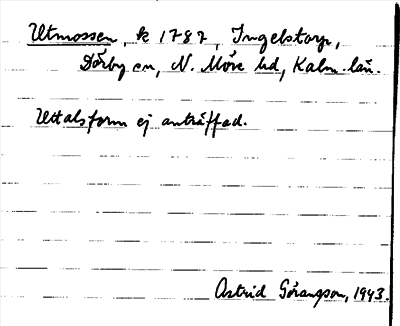 Utmossen, k 1787, Ingelstorp,
Dörby sn, N. Möre hd, Kalm. län.
Uttalsform ej anträffad.
Astrid Göransson, 1943.